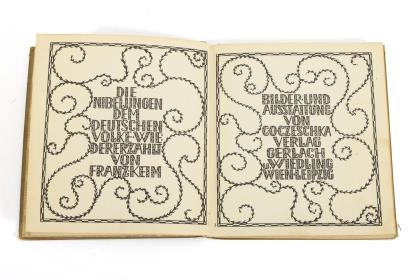 DIE
NIBELUNGEN
DEM
DEUTSCHEN
VOLKE·WIE
DERERZÄHLT
VON
FRANZKEIM
BILDERUND
AUSSTATTUNG
VON
COCZESCHKA
VERLAG
GERLACH
U·WIEDLING
WIEN·LEIPZIG